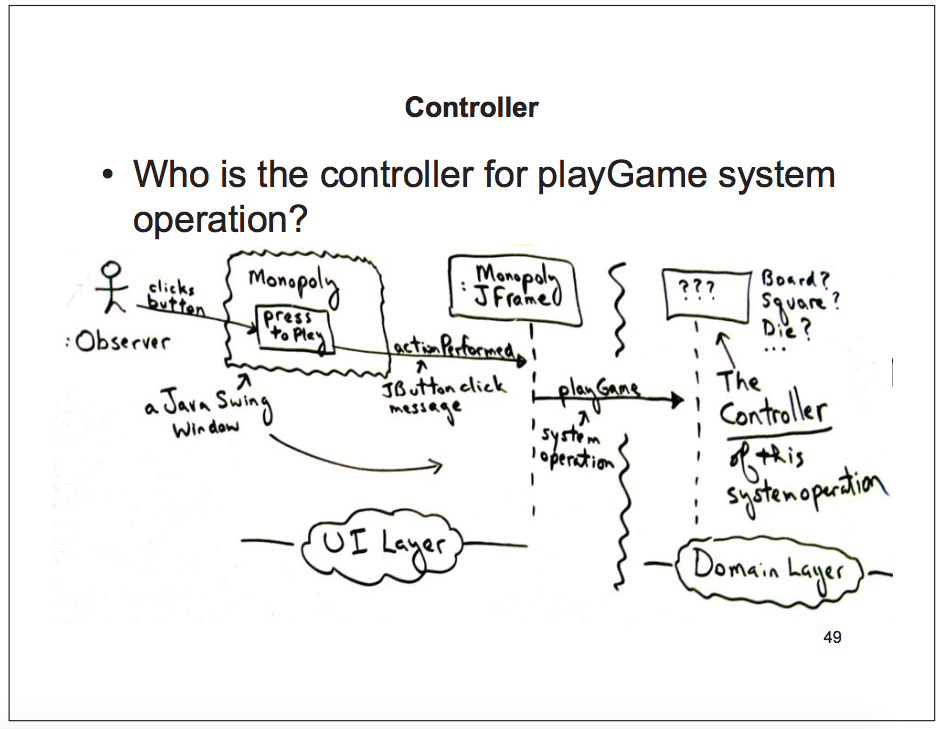 Controller
• Who is the controller for playGame system
operation?
:Observer
clicks
button
Monopoly
press
to Play
a Java Swing
Window
actionPerformed
JButton click
message
: Monopoly
JFrame
playGame
system
operation
???
Board?
Square?
Die?
...
The
Controller
of this
system operation
UI Layer
Domain Layer
49